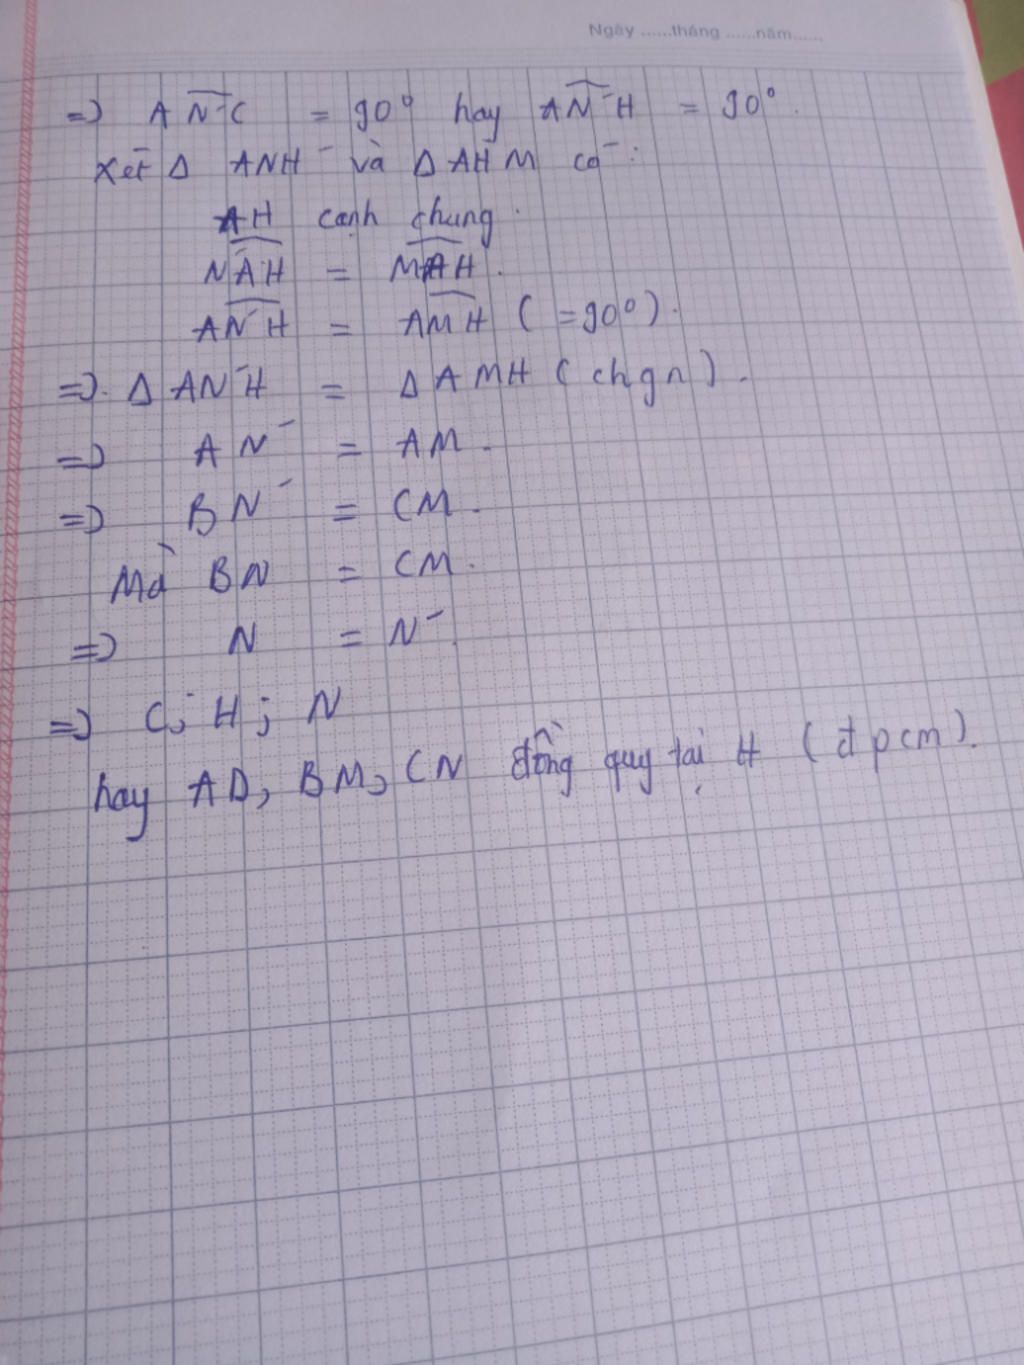 Ngày ......tháng ......năm......
=> AN'C = 90° hay AN'H = 90°.
Xét Δ ANH' và Δ AHM có:
AH cạnh chung.
NAH = MAH.
AN'H = AMH (=90°).
=>. Δ AN'H = Δ AMH (chgn).
=> AN' = AM.
=> BN' = CM.
Mà BN = CM.
=> N = N'.
=> C; H; N
hay AD, BM, CN đồng quy tại H (đpcm).